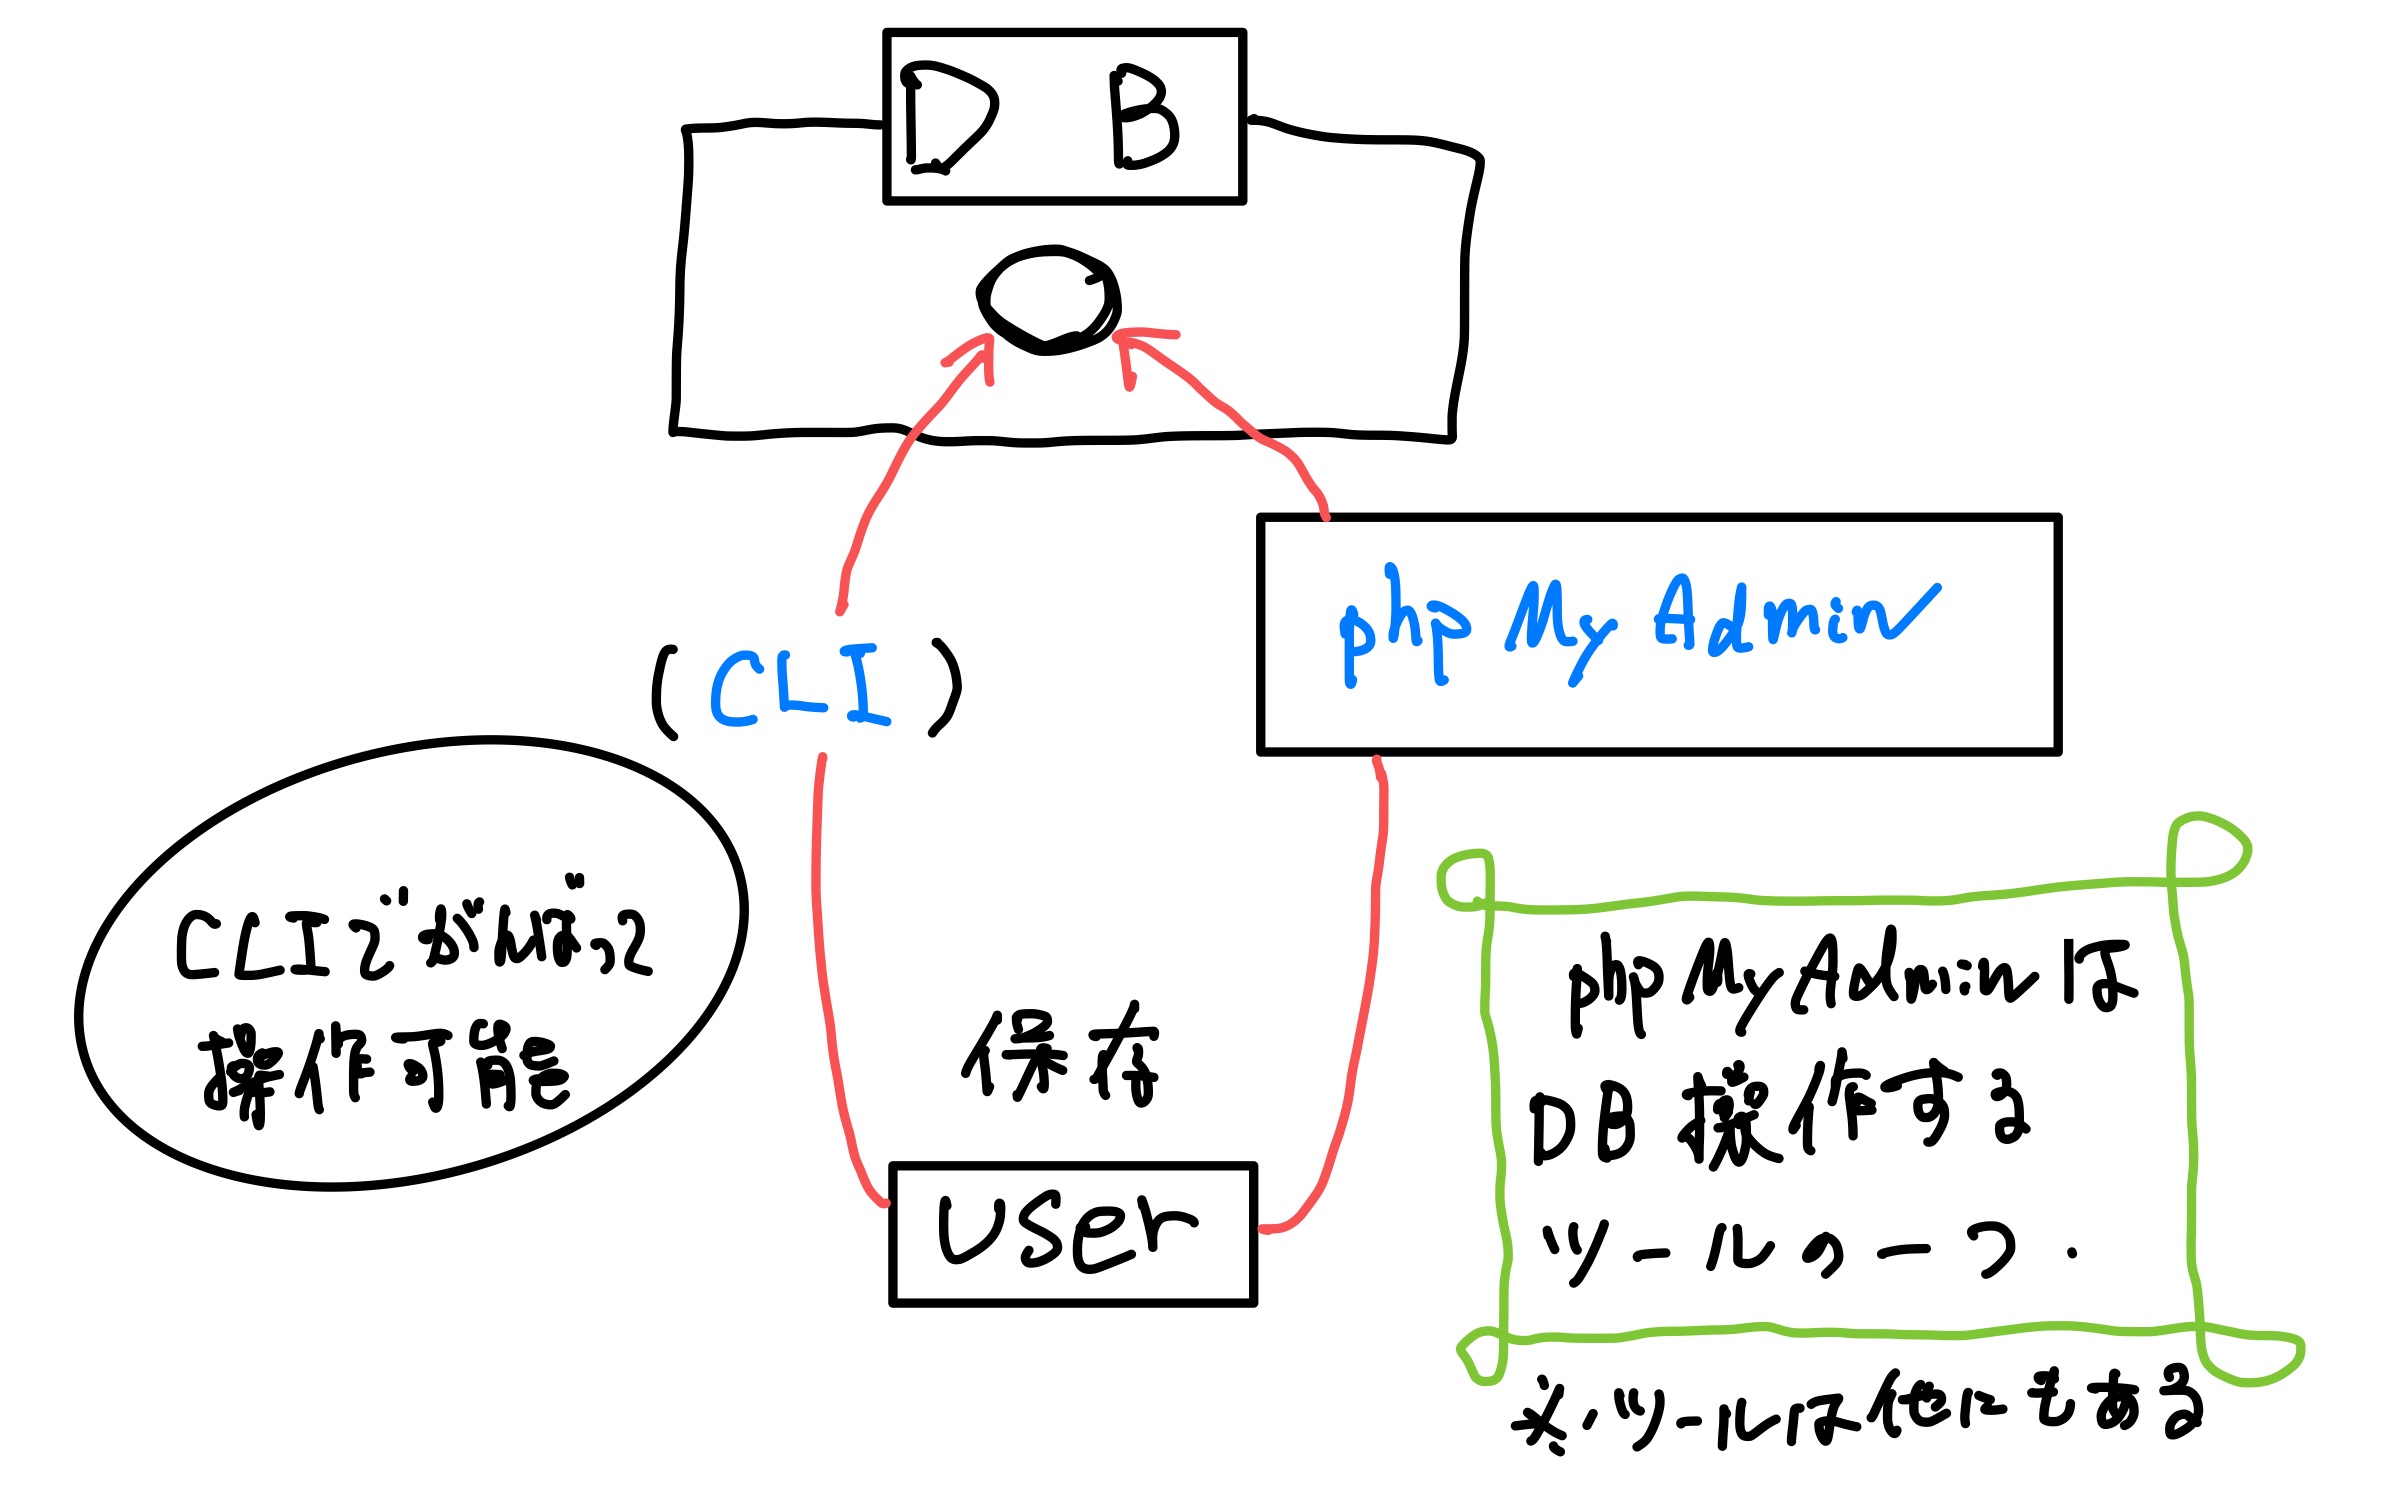 DB
php My Admin
(CLI)
CLIでお他は"って
操作可能
保存
user
phpMyAdminは
DB操作する
ツールの一つ.
※ツールは他にもある